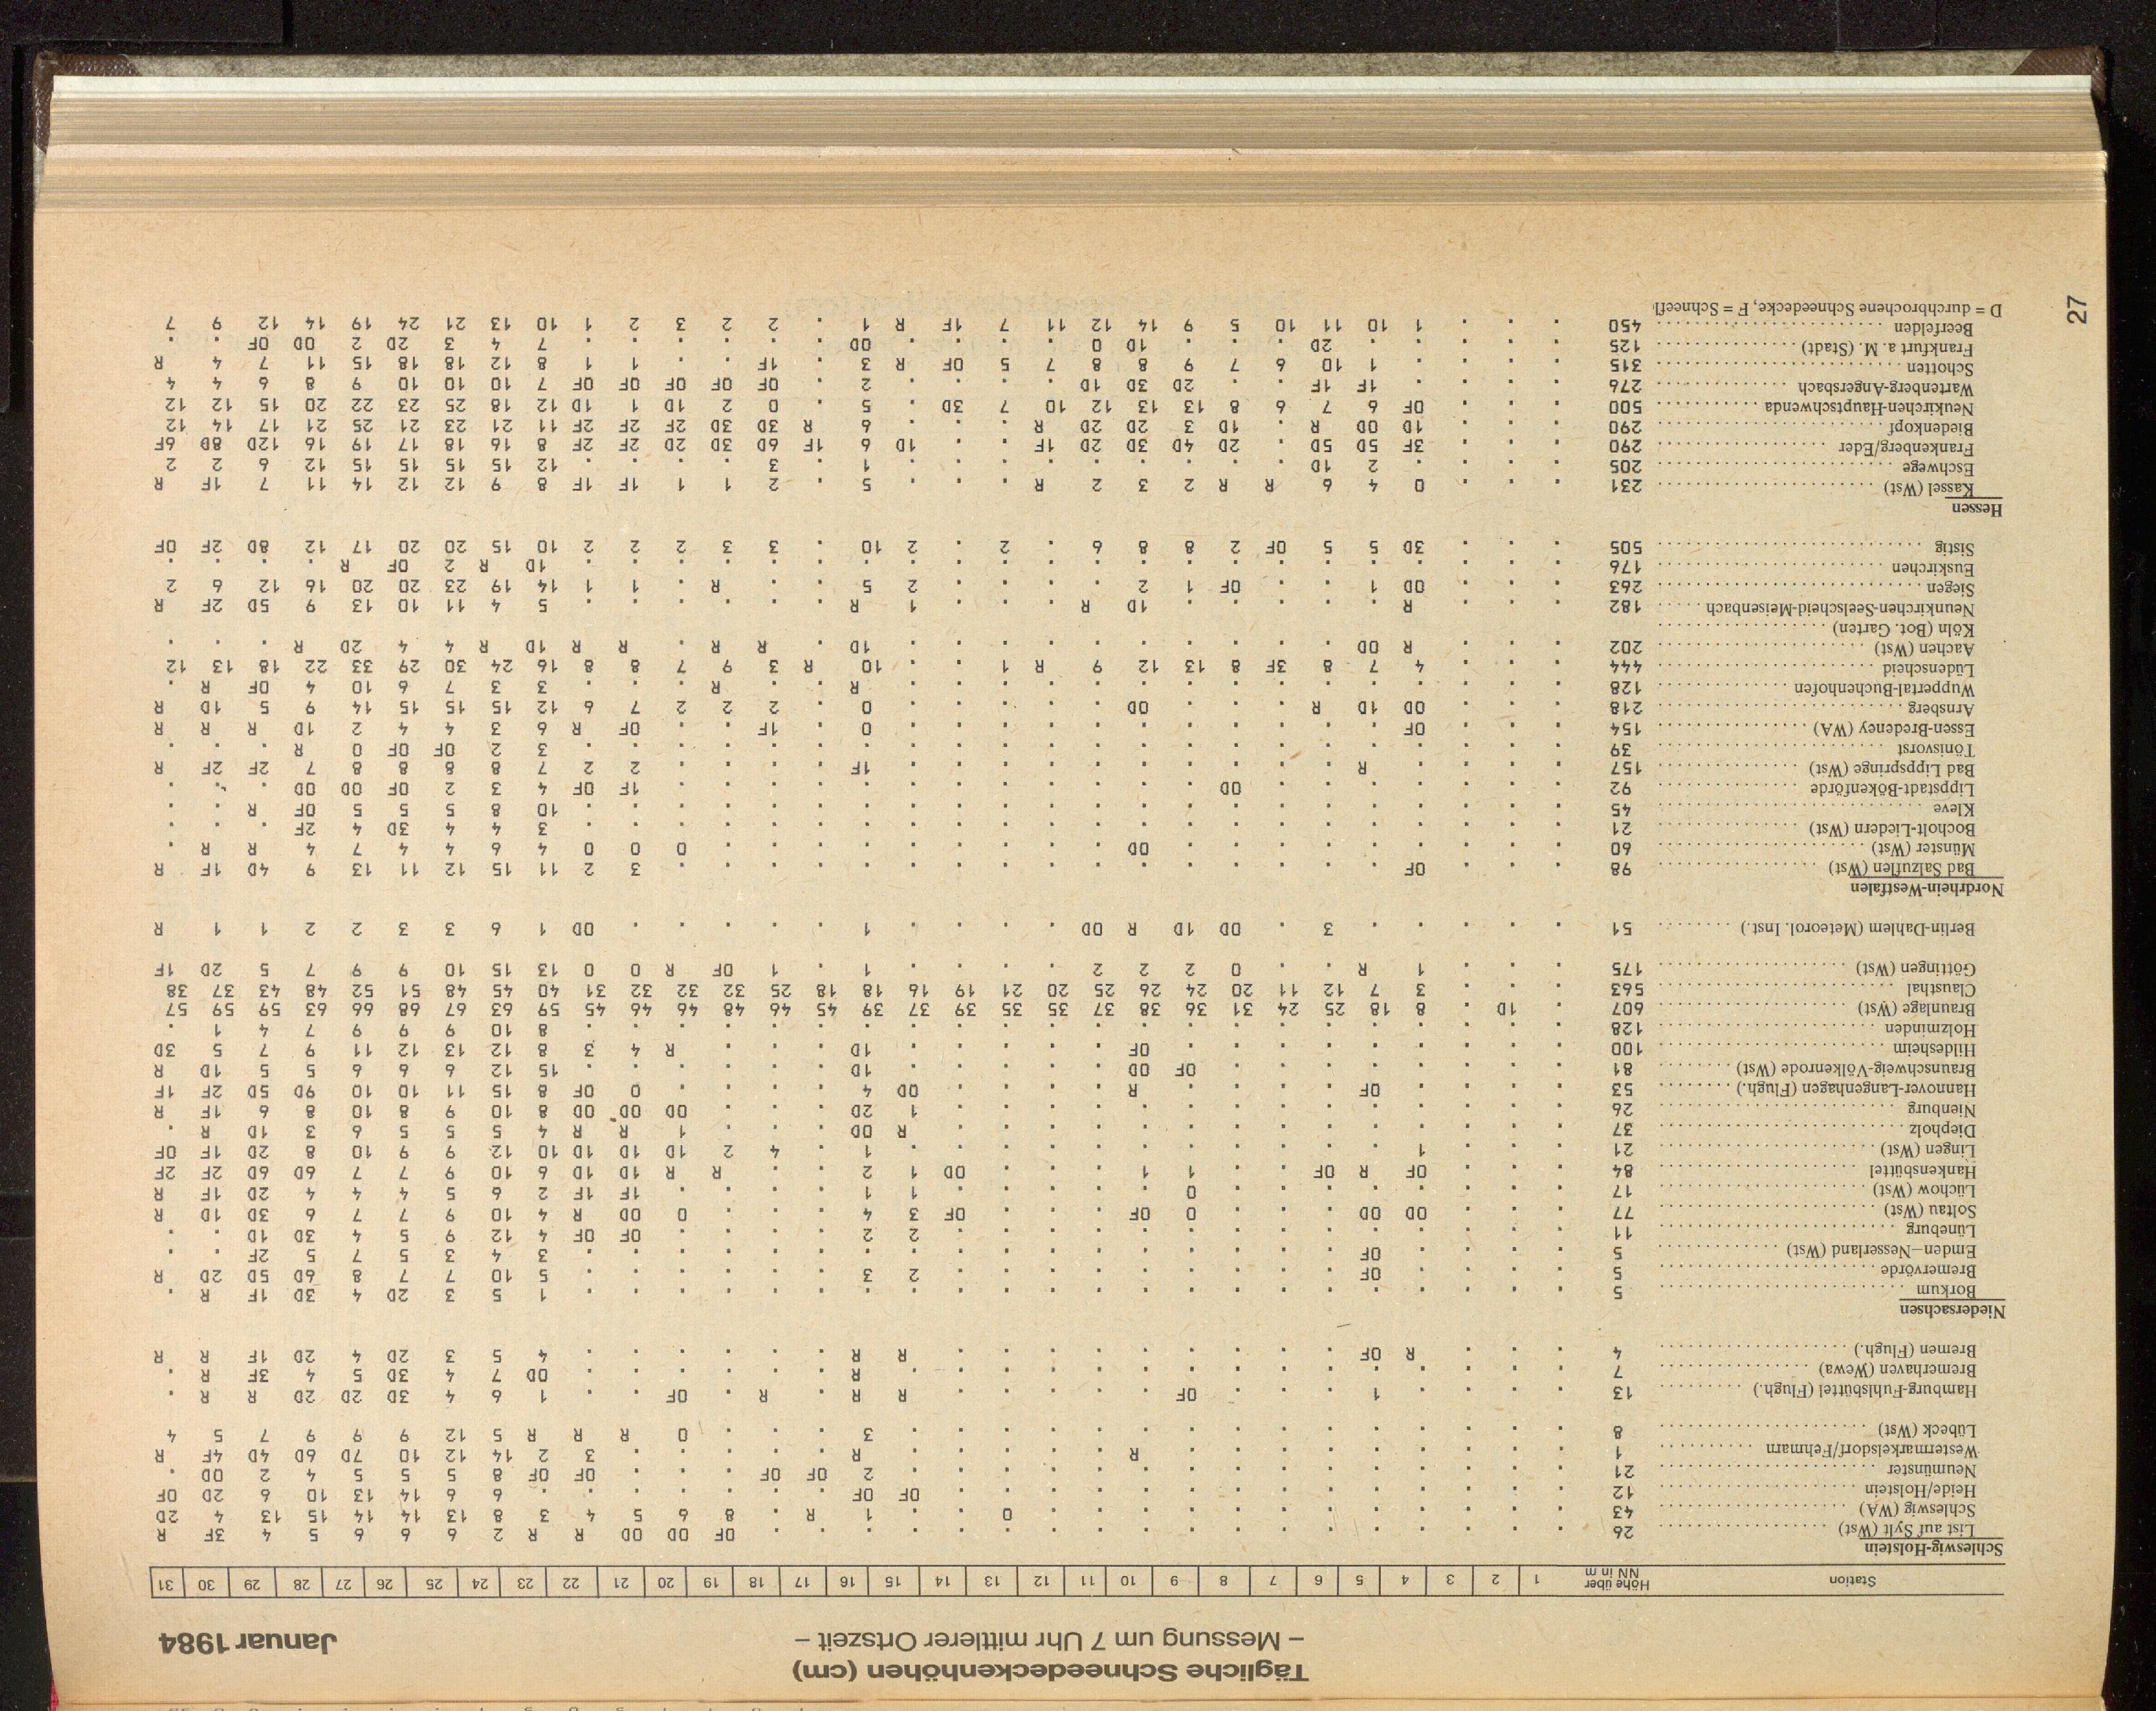 Tägliche Schneedeckenhöhen (cm)
– Messung um 7 Uhr mittlerer Ortszeit –
Januar 1984
Station Höhe über NN in m 1 2 3 4 5 6 7 8 9 10 11 12 13 14 15 16 17 18 19 20 21 22 23 24 25 26 27 28 29 30 31
Schleswig-Holstein
List auf Sylt (Wst) 26 . . . . . . . . . . . . . . . . . . 0F 0D 0D R R 2 6 6 6 5 4 3F R
Schleswig (WA) 43 . . . . . . . . . . . . 0 . . 1 R . 8 6 5 4 3 8 13 14 14 15 13 4 2D
Heide/Holstein 12 . . . . . . . . . . . . . . 0F 0F . . . . . . . 6 6 14 13 10 6 2D 0F
Neumünster 21 . . . . . . . . . . . . . . . 2 0F 0F . . . 0F 0F 8 5 5 5 4 2 0D .
Westermarkelsdorf/Fehmarn 1 . . . . . . . . . R . . . . . R . . . . . 3 2 14 12 10 7D 6D 4D 4F R
Lübeck (Wst) 8 . . . . . . . . . . . . . . . 3 . . . 0 R R R 5 12 9 9 9 7 5 4
Hamburg-Fuhlsbüttel (Flugh.) 13 . . . . 1 . . . 0F . . . . . R R . R . 0F . . 1 6 4 3D 2D 2D R R .
Bremerhaven (Wewa) 7 . . . . . . . . . . . . . . . R . . . . . . 0D 7 4 3D 5 4 3F R .
Bremen (Flugh.) 4 . . . R 0F . . . . . . . . . R R . . . . . . 4 5 3 2D 4 2D 1F R R
Niedersachsen
Borkum 5 . . . . . . . . . . . . . . . . . . . . . . 1 5 3 2D 4 3D 1F R .
Bremervörde 5 . . . . 0F . . . . . . . . . 2 3 . . . . . . 5 10 7 7 8 6D 5D 2D R
Emden–Nesserland (Wst) 5 . . . . 0F . . . . . . . . . . . . . . . . . 3 4 3 5 7 5 2F . .
Lüneburg 11 . . . . . . . . . . . . . . 2 2 . . . . 0F 0F 4 12 9 5 4 3D 1D . .
Soltau (Wst) 77 . . . 0D 0D . . . 0 0F . . . 0F 3 4 . . . 0 0D R 4 10 9 7 7 6 3D 1D R
Lüchow (Wst) 17 . . . . . . . . 0 . . . . . 1 1 . . . . 1F 1F 2 6 5 4 4 4 2D 1F R
Hankensbüttel 84 . . . 0F R 0F . . 1 1 . . . 0D 1 2 . . R R 1D 1D 6 10 9 7 7 6D 6D 2F 2F
Lingen (Wst) 21 . . . 1 . . . . . . . . . . . 1 . 4 2 1D 1D 1D 10 12 9 9 10 8 2D 1F 0F
Diepholz 37 . . . . . . . . . . . . . . R 0D . . . 1 R R 4 5 5 5 6 3 1D R .
Nienburg 26 . . . . . . . . . . . . . . 1 2D . . . 0D 0D 0D 8 10 9 8 10 8 6 1F R
Hannover-Langenhagen (Flugh.) 53 . . . . 0F . . . . R . . . . 0D 4 . . . . 0 0F 8 15 11 10 10 9D 5D 2F 1F
Braunschweig-Völkenrode (Wst) 81 . . . . . . . . 0F 0D . . . . . 1D . . . . . . 15 12 6 6 6 5 5 1D R
Hildesheim 100 . . . . . . . . . 0F . . . . . 1D . . . R 4 3 8 12 13 12 11 9 7 5 3D
Holzminden 128 . . . . . . . . . . . . . . . . . . . . . . 8 10 9 9 9 7 4 1 .
Braunlage (Wst) 607 . 1D . 8 18 25 24 31 36 38 37 35 35 39 37 39 45 46 48 46 46 45 59 63 67 68 66 63 59 59 57
Clausthal 563 . . . 3 7 12 11 20 24 26 25 20 21 19 16 18 18 25 32 32 32 31 40 45 48 51 52 48 43 37 38
Göttingen (Wst) 175 . . . 1 R . . 0 2 2 2 . . . . 1 . 1 0F R 0 0 13 15 10 9 9 7 5 2D 1F
Berlin-Dahlem (Meteorol. Inst.) 51 . . . . . 3 . 0D 1D R 0D . . . . 1 . . . . . 0D 1 6 3 3 2 2 1 1 R
Nordrhein-Westfalen
Bad Salzuflen (Wst) 98 . . . 0F . . . . . . . . . . . . . . . . 3 2 11 15 12 11 13 9 4D 1F R
Münster (Wst) 60 . . . . . . . . . 0D . . . . . . . . . 0 0 0 4 6 4 4 7 4 R R .
Bocholt-Liedern (Wst) 21 . . . . . . . . . . . . . . . . . . . . . . 3 4 4 3D 4 2F . . .
Kleve 45 . . . . . . . . . . . . . . . . . . . . . . 10 8 5 5 5 0F R . .
Lippstadt-Bökenförde 92 . . . . . . . 0D . . . . . . . . . . . . 1F 0F 4 3 2 0F 0D 0D . . .
Bad Lippspringe (Wst) 157 . . . . R . . . . . . . . . . 1F . . . . 2 2 7 8 8 8 8 7 2F 2F R
Tönisvorst 39 . . . . . . . . . . . . . . . . . . . . . . 3 2 0F 0F 0 R . . .
Essen-Bredeney (WA) 154 . . . 0F . . . . . . . . . . . 0 . 1F . . 0F R 6 3 4 4 2 1D R R R
Arnsberg 218 . . . 0D 1D R . . . 0D . . . . . 0 . 2 2 2 7 6 12 15 15 15 14 9 5 1D R
Wuppertal-Buchenhofen 128 . . . . . . . . . . . . . . . R . . R . . . 3 3 7 6 10 4 0F R .
Lüdenscheid 444 . . . 4 7 8 3F 8 13 12 9 R 1 . . 10 R 3 9 7 8 8 16 24 30 29 33 22 18 13 12
Aachen (Wst) 202 . . . R 0D . . . . . . . . . . 1D . R R . R R 1D R 4 4 2D R . . .
Köln (Bot. Garten)
Neunkirchen-Seelscheid-Meisenbach 182 . . . R . . . . . 1D R . . . 1 R . . . . . . 5 4 11 10 13 9 5D 2F R
Siegen 263 . . . 0D 1 . . 0F 1 2 . . . . 2 5 . . R . 1 1 14 19 23 20 20 16 12 6 2
Euskirchen 176 . . . . . . . . . . . . . . . . . . . . . . 1D R 2 0F R . . . .
Sistig 505 . . . 3D 5 5 0F 2 8 8 6 . 2 . 2 10 . 3 3 2 2 2 10 15 20 20 17 12 8D 2F 0F
Hessen
Kassel (Wst) 231 . . . 0 4 6 R R 2 3 2 R . . . 5 . 2 1 1 1F 1F 8 9 12 12 14 11 7 1F R
Eschwege 205 . . . . 2 1D . . . . . . . . . 1 . 3 . . . . 12 15 15 15 15 12 6 2 2
Frankenberg/Eder 290 . . . 3F 5D 5D . 2D 4D 3D 2D 1F . . 1D 6 1F 6D 3D 2D 2F 2F 8 16 18 17 19 16 12D 8D 6F
Biedenkopf 290 . . . 1D 0D R . 1D 3 2D 2D R . . . 6 R 3D 3D 2F 2F 2F 11 21 23 21 25 21 17 14 12
Neukirchen-Hauptschwenda 500 . . . 0F 6 7 6 8 13 13 12 10 7 3D . 5 . 0 2 1D 1 1D 12 18 25 23 22 20 15 12 12
Wartenberg-Angersbach 276 . . . . 1F 1F . . 2D 3D 1D . . . . 2 . 0F 0F 0F 0F 0F 7 10 10 10 9 8 6 4 4
Schotten 315 . . . . 1 10 6 7 9 8 8 7 5 0F R 3 . 1F . . 1 1 8 12 18 18 15 11 7 4 R
Frankfurt a. M. (Stadt) 125 . . . . . 2D . . . 1D 0 . . . . 0D . . . . . . 7 4 3 2D 2 0D 0F . .
Beerfelden 450 . . . 1 10 11 10 5 9 14 12 11 7 1F R 1 . 2 2 3 2 1 10 13 21 24 19 14 12 9 7
D = durchbrochene Schneedecke, F = Schneefl
27